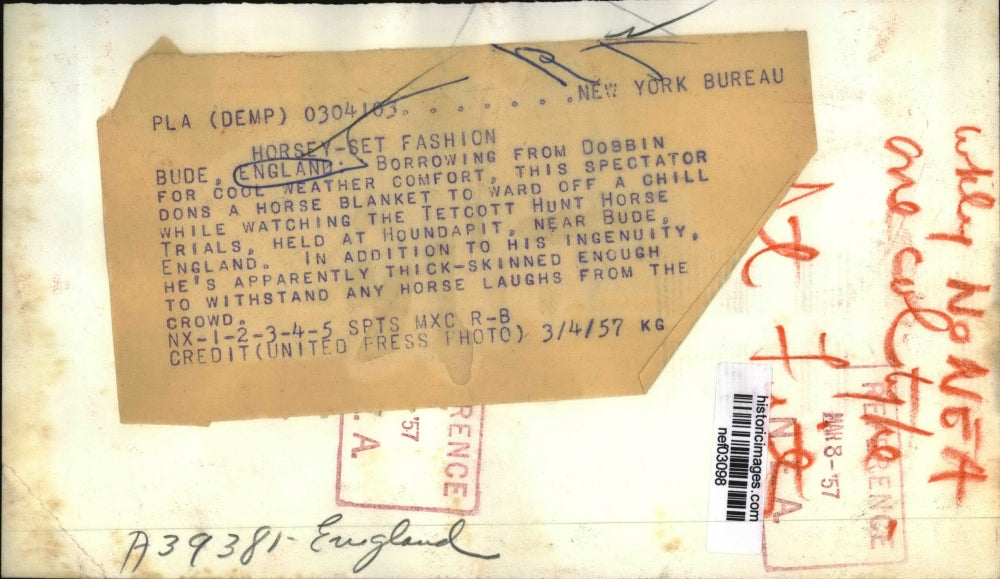 PLA (DEMP) 0304103. . . . . . . .NEW YORK BUREAU
HORSEY-SET FASHION
BUDE, ENGLAND. BORROWING FROM DOBBIN
FOR COOL WEATHER COMFORT, THIS SPECTATOR
DONS A HORSE BLANKET TO WARD OFF A CHILL
WHILE WATCHING THE TETCOTT HUNT HORSE
TRIALS, HELD AT HOUNDAPIT, NEAR BUDE,
ENGLAND. IN ADDITION TO HIS INGENUITY,
HE'S APPARENTLY THICK-SKINNED ENOUGH
TO WITHSTAND ANY HORSE LAUGHS FROM THE
CROWD.
NX-1-2-3-4-5 SPTS MXC R-B
CREDIT(UNITED PRESS PHOTO) 3/4/57 KG
NO NEA
one col
RENCE
'57
. A.
REFERENCE
MAR 8-'57
N. E. A.
historicimages.com
nef03098
A39381- England